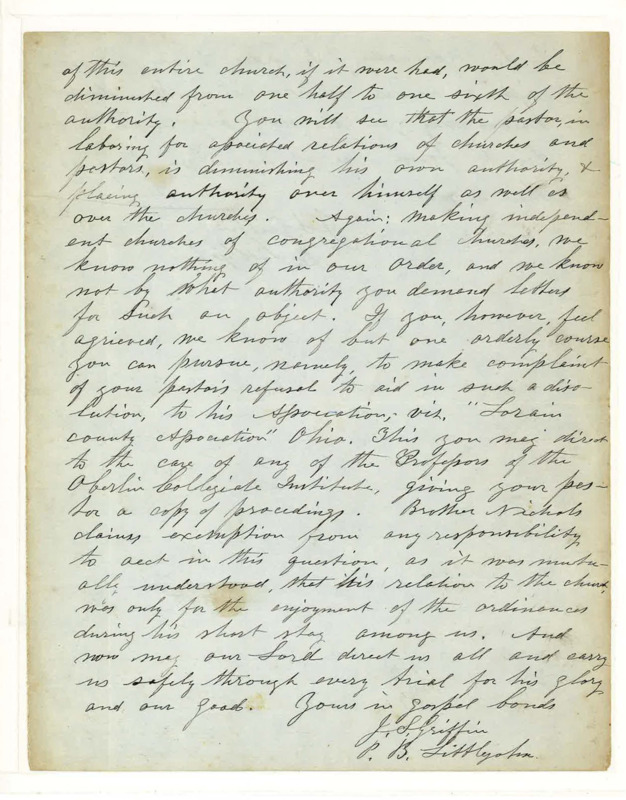 of this entire church, if it were had, would be
diminished from one half to one sixth of the
authority. You will see that the pastor, in
laboring for associated relations of churches and
pastors, is diminishing his own authority, &
placing authority over himself as well as
over the churches. Again: making independ-
ent churches of congregational churches, we
know nothing of in our order, and we know
not by what authority you demand letters
for such an object. If you, however, feel
agrieved, we know of but one orderly course
you can pursue, namely, to make complaint
of your pastor's refusal to aid in such a disso-
lution, to his Association,- viz. "Lorain
county Association" Ohio. This you may direct
to the care of any of the Professors of the
Oberlin Collegiate Institute, giving your pas-
tor a copy of procedings. Brother Nichols
claims exemption from any responsibility
to act in this question, as it was mutu-
ally understood, that his relation to the church
was only for the enjoyment of the ordinances
during his short stay among us. And
now may our Lord direct us all and carry
us safely through every trial for his glory
and our good. Yours in gospel bonds
J. S. Griffin
P. B. Littlejohn.